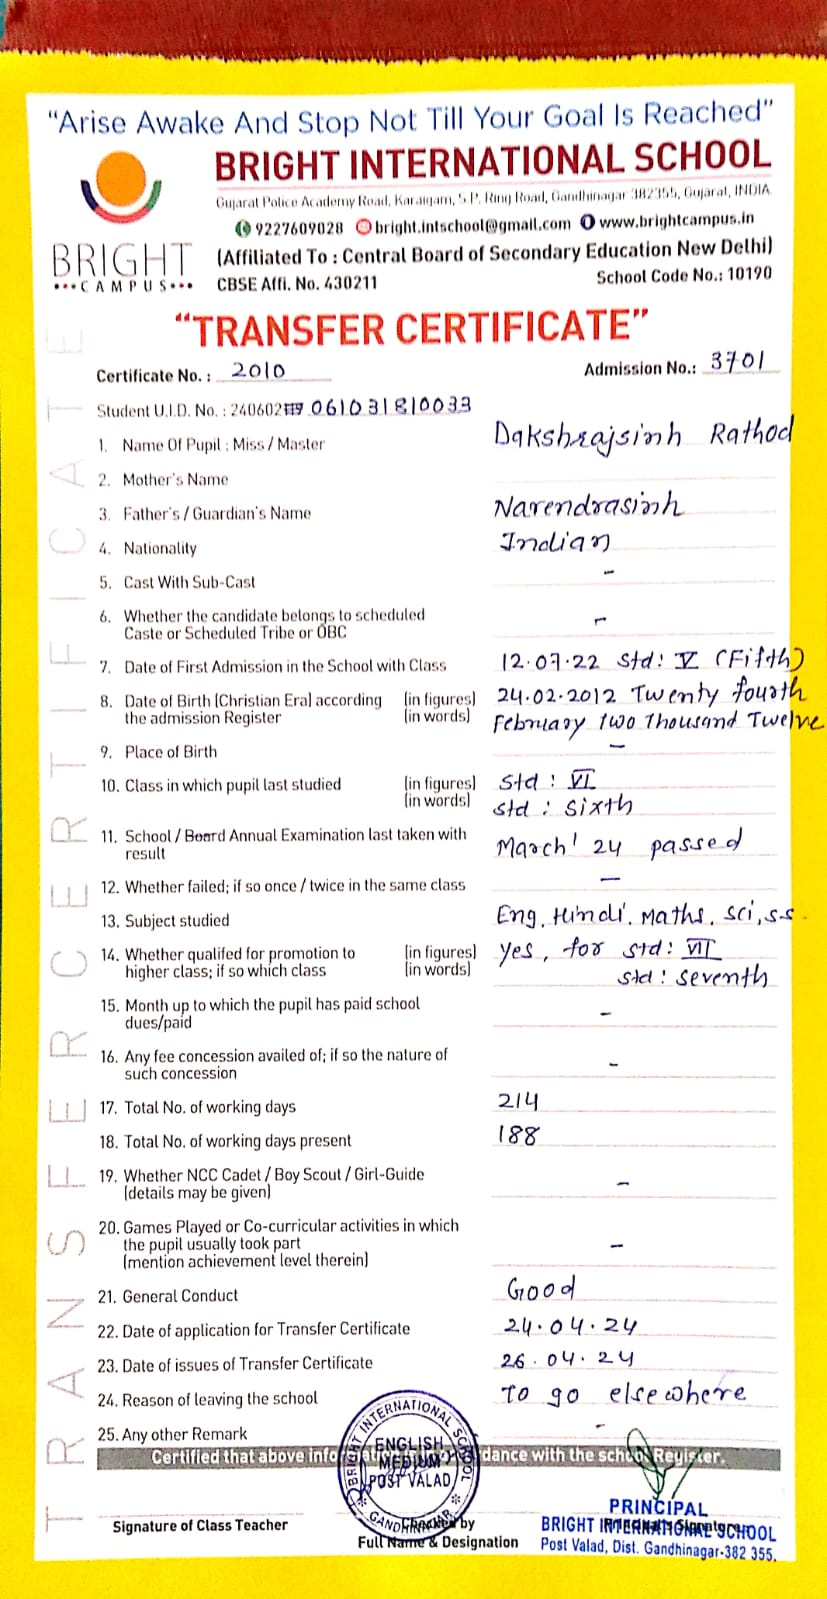 "Arise Awake And Stop Not Till Your Goal Is Reached"
BRIGHT INTERNATIONAL SCHOOL
Gujarat Police Academy Road, Karaigam, S.P. Ring Road, Gandhinagar 382355, Gujarat, INDIA.
9227609028 bright.intschool@gmail.com www.brightcampus.in
BRIGHT
•••CAMPUS•••
(Affiliated To : Central Board of Secondary Education New Delhi)
CBSE Affi. No. 430211 School Code No.: 10190
"TRANSFER CERTIFICATE"
Certificate No. : 2010 Admission No.: 3701
Student U.I.D. No. : 240602 061031810033
1. Name Of Pupil : Miss / Master Dakshrajsinh Rathod
2. Mother's Name
3. Father's / Guardian's Name Narendrasinh
4. Nationality Indian
5. Cast With Sub-Cast -
6. Whether the candidate belongs to scheduled
Caste or Scheduled Tribe or OBC -
7. Date of First Admission in the School with Class 12.07.22 Std: V (Fifth)
8. Date of Birth (Christian Era) according (in figures) 24.02.2012 Twenty fourth
the admission Register (in words) February Two Thousand Twelve
9. Place of Birth -
10. Class in which pupil last studied (in figures) Std : VI
(in words) Std : Sixth
11. School / Board Annual Examination last taken with
result March' 24 passed
12. Whether failed; if so once / twice in the same class -
13. Subject studied Eng, Hindi, Maths, Sci, S.S.
14. Whether qualifed for promotion to (in figures) Yes, for Std: VII
higher class; if so which class (in words) Std: Seventh
15. Month up to which the pupil has paid school
dues/paid -
16. Any fee concession availed of; if so the nature of
such concession -
17. Total No. of working days 214
18. Total No. of working days present 188
19. Whether NCC Cadet / Boy Scout / Girl-Guide
(details may be given) -
20. Games Played or Co-curricular activities in which
the pupil usually took part
(mention achievement level therein) -
21. General Conduct Good
22. Date of application for Transfer Certificate 24.04.24
23. Date of issues of Transfer Certificate 26.04.24
24. Reason of leaving the school To go elsewhere
25. Any other Remark -
Certified that above info dance with the school Register.
BRIGHT INTERNATIONAL SCHOOL
ENGLISH
MEDIUM
POST VALAD
GANDHINAGAR
Signature of Class Teacher
Checked by
Full Name & Designation
PRINCIPAL
BRIGHT INTERNATIONAL SCHOOL
Post Valad, Dist. Gandhinagar-382 355.
TRANSFER CERTIFICATE